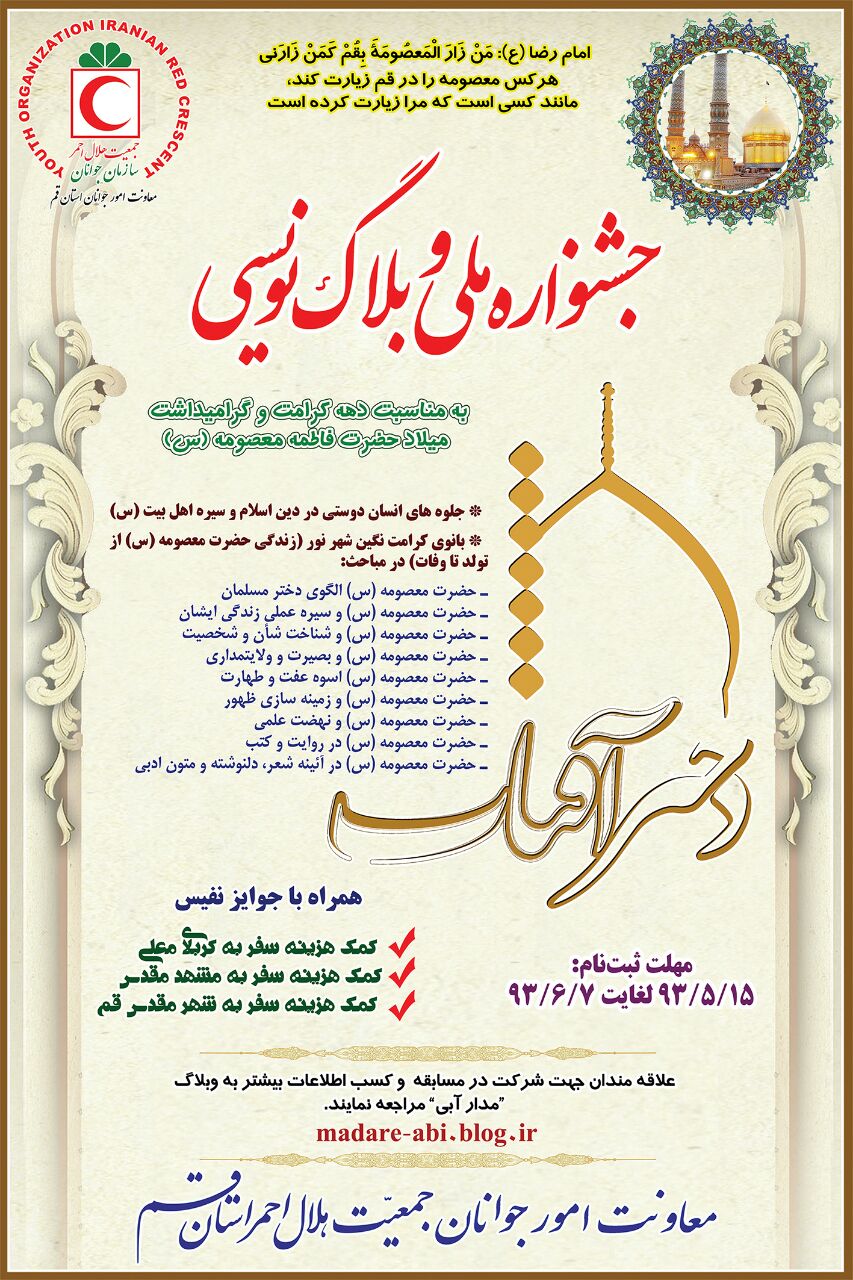 YOUTH ORGANIZATION IRANIAN RED CRESCENT
جمعیت هلال احمر
سازمان جوانان
معاونت امور جوانان استان قم
امام رضا (ع): مَنْ زَارَ الْمَعصُومَةَ بِقُمْ كَمَنْ زَارَنى
هرکس معصومه را در قم زیارت کند،
مانند کسی است که مرا زیارت کرده است
جشنواره ملی وبلاگ نویسی
به مناسبت دهه کرامت و گرامیداشت
میلاد حضرت فاطمه معصومه (س)
❊ جلوه های انسان دوستی در دین اسلام و سیره اهل بیت (س)
❊ بانوی کرامت نگین شهر نور (زندگی حضرت معصومه (س) از
تولد تا وفات) در مباحث:
ـ حضرت معصومه (س) الگوی دختر مسلمان
ـ حضرت معصومه (س) و سیره عملی زندگی ایشان
ـ حضرت معصومه (س) و شناخت شأن و شخصیت
ـ حضرت معصومه (س) و بصیرت و ولایتمداری
ـ حضرت معصومه (س) اسوه عفت و طهارت
ـ حضرت معصومه (س) و زمینه سازی ظهور
ـ حضرت معصومه (س) و نهضت علمی
ـ حضرت معصومه (س) در روایت و کتب
ـ حضرت معصومه (س) در آئینه شعر، دلنوشته و متون ادبی
دختر آفتاب
همراه با جوایز نفیس
کمک هزینه سفر به کربلای معلی
کمک هزینه سفر به مشهد مقدس
کمک هزینه سفر به شهر مقدس قم
مهلت ثبت‌نام:
۹۳/۵/۱۵ لغایت ۹۳/۶/۷
علاقه مندان جهت شرکت در مسابقه و کسب اطلاعات بیشتر به وبلاگ
"مدار آبی" مراجعه نمایند.
madare-abi.blog.ir
معاونت امور جوانان جمعیّت هلال احمر استان قم